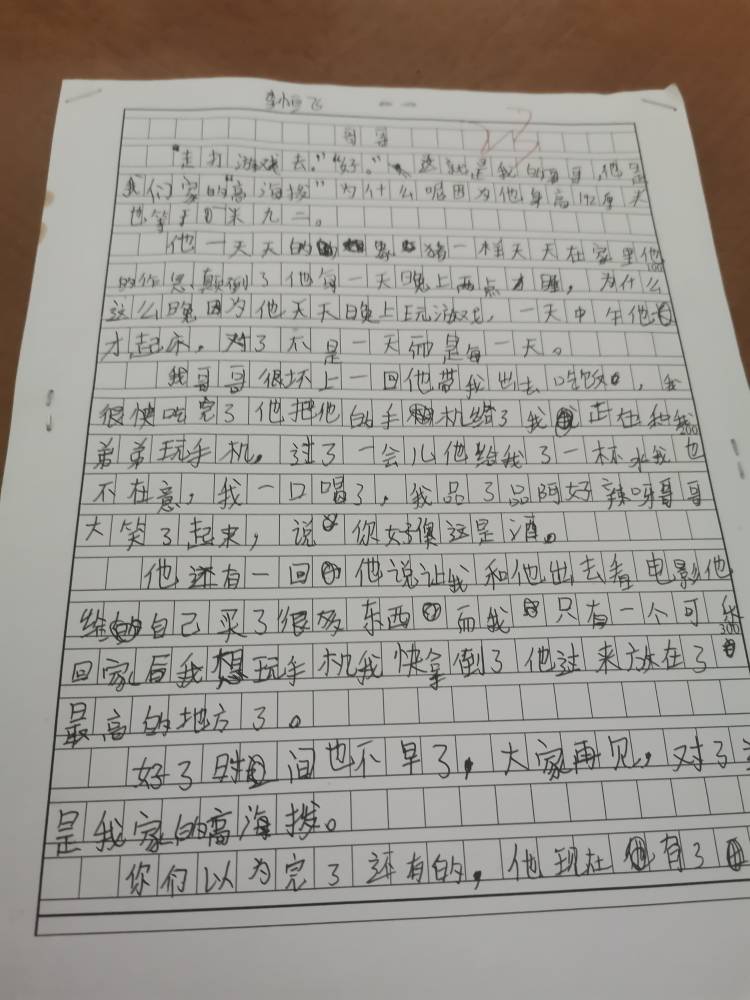 李恒飞 一一
哥哥
“走打游戏去。”“好。”这就是我的哥哥,他是
我们家的“高海拨”为什么呢因为他身高192厘米
也等于米九二。
他一天天的猪一样天天在家里他
的作息颠倒了他每一天晚上两点才睡,为什么
这么晚因为他天天晚上玩游戏,一天中午他
才起床,对了不是一天而是每一天。
我哥哥很坏上一回他带我出去吃饭,我
很快吃完了他把他的手机给了我正在和我
200
弟弟玩手机,过了一会儿他给我了一杯水我也
不在意,我一口喝了,我品了品阿好辣呀哥哥
大笑了起来,说你好傻这是酒。
他还有一回他说让我和他出去看电影他
给自己买了很多东西而我只有一个可乐
300
回家后我想玩手机我快拿倒了他过来放在了
最高的地方了。
好了时间也不早了,大家再见,对了
是我家的高海拨。
你们以为完了还有的,他现在有了